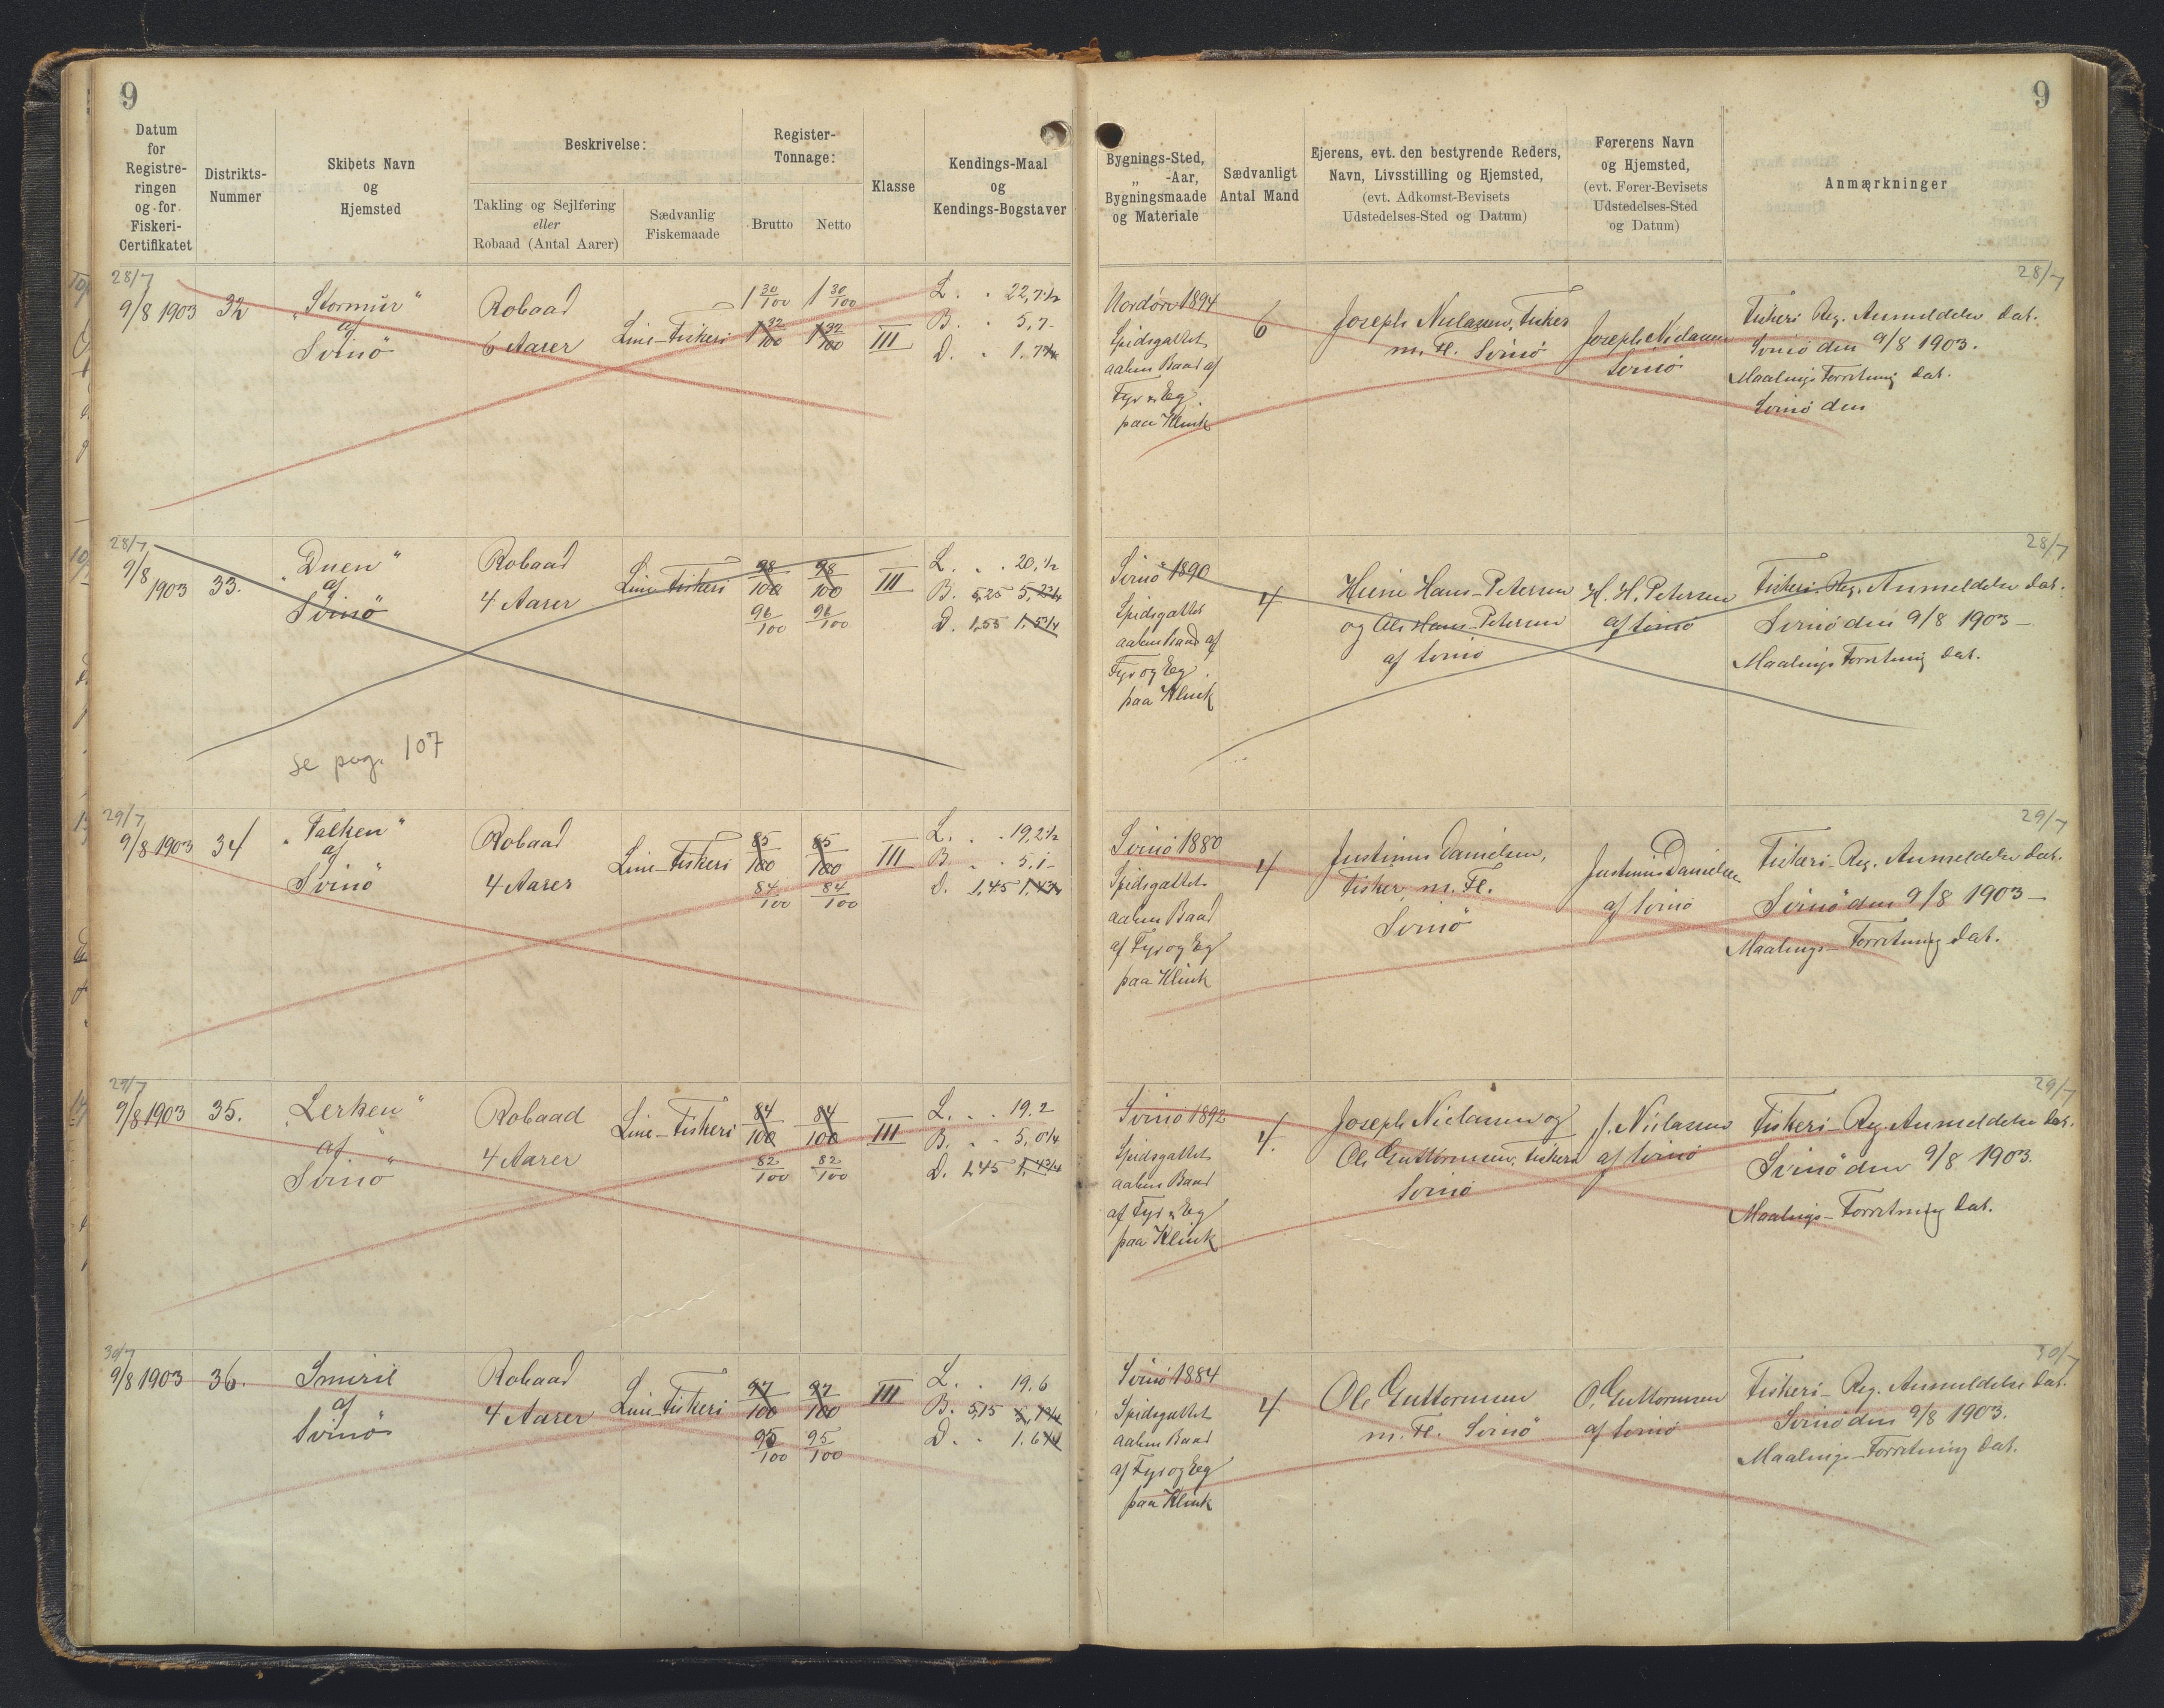 9
Datum
for
Registre-
ringen
og for
Fiskeri-
Certifikatet
Distrikts-
Nummer
Skibets Navn
og
Hjemsted
Beskrivelse:
Takling og Sejlføring
eller
Robaad (Antal Aarer)
Sædvanlig
Fiskemaade
Register-
Tonnage:
Brutto
Netto
Klasse
Kendings-Maal
og
Kendings-Bogstaver
28/7
9/8 1903
32
"Stormur"
af
Svinö
Robaad
6 Aarer
Line-Fiskeri
1 30/100
1 30/100
1 32/100
1 32/100
III
L. . 22,7½
B. . 5,7-
D. . 1.7¾
28/7
9/8
1903
33.
"Duen"
af
Svinö
Robaad
4 Aarer
Line-Fiskeri
98/100
98/100
96/100
96/100
III
L. . . 20,½
B. 5,25 5,2¾
D. 1,55 1,5¼
se pag. 107
29/7
9/8 1903
34
"Falken"
af
Svinö
Robaad
4 Aarer
Line-Fiskeri
85/100
85/100
84/100
84/100
III
L. . . 19,2½
B. . . 5,1-
D. 1,45 1,4¾
29/7
9/8 1903
35.
"Lerken"
af
Svinö
Robaad
4 Aarer
Line-Fiskeri
84/100
84/100
82/100
82/100
III
L. . . 19.2
B. . . 5,0¼
D. 1,45 1,4¾
30/7
9/8 1903
36.
Smiril
af
Svinö
Robaad
4 Aarer
Line-Fiskeri
97/100
97/100
95/100
95/100
III
L. . 19.6
B. 5,15 5,1¾
D. . 1.6¼
9
Bygnings-Sted,
„ -Aar,
Bygningsmaade
og Materiale
Sædvanligt
Antal Mand
Ejerens, evt. den bestyrende Reders,
Navn, Livsstilling og Hjemsted,
(evt. Adkomst-Bevisets
Udstedelses-Sted og Datum)
Førerens Navn
og Hjemsted,
(evt. Fører-Bevisets
Udstedelses-Sted
og Datum)
Anmærkninger
28/7
Nordöre 1894
Spidsgattet
aaben Baad af
Fyr & Eg
paa Klink
6
Joseph Nielasen, Fisker
m. Fl. Svinö
Joseph Nielasen
Svinö
Fiskeri Reg. Anmeldelse dat.
Svinö den 9/8 1903.
Maalings Forretning dat.
Svinö den
28/7
Svinö 1890
Spidsgattet
aaben Baad af
Fyr og Eg
paa Klink
4
Heine Hans-Petersen
og Ole Hans-Petersen
af Svinö
H. H. Petersen
af Svinö
Fiskeri-Reg. Anmeldelse dat.
Svinö den 9/8 1903-
Maalings Forretning dat.
29/7
Svinö 1880
Spidsgattet
aaben Baad
af Fyr og Eg
paa Klink
4
Justinus Danielsen,
Fisker, m. Fl.
Svinö
Justinus Danielsen
af Svinö
Fiskeri-Reg. Anmeldelse dat.
Svinö den 9/8 1903-
Maalings-Forretning dat.
29/7
Svinö 1892
Spidsgattet
aaben Baad
af Fyr & Eg
paa Klink
4.
Joseph Nielasen og
Ole Guttormsen, Fiskere
Svinö
J. Nielasen
af Svinö
Fiskeri-Reg. Anmeldelse dat.
Svinö den 9/8 1903.
Maalings-Forretning dat.
30/7
Svinö 1884
Spidsgattet
aaben Baad
af Fyr og Eg
paa Klink
4
Ole Guttormsen
m. Fl. Svinö
O. Guttormsen
af Svinö
Fiskeri-Reg. Anmeldelse dat.
Svinö den 9/8 1903.
Maalings-Forretning dat.